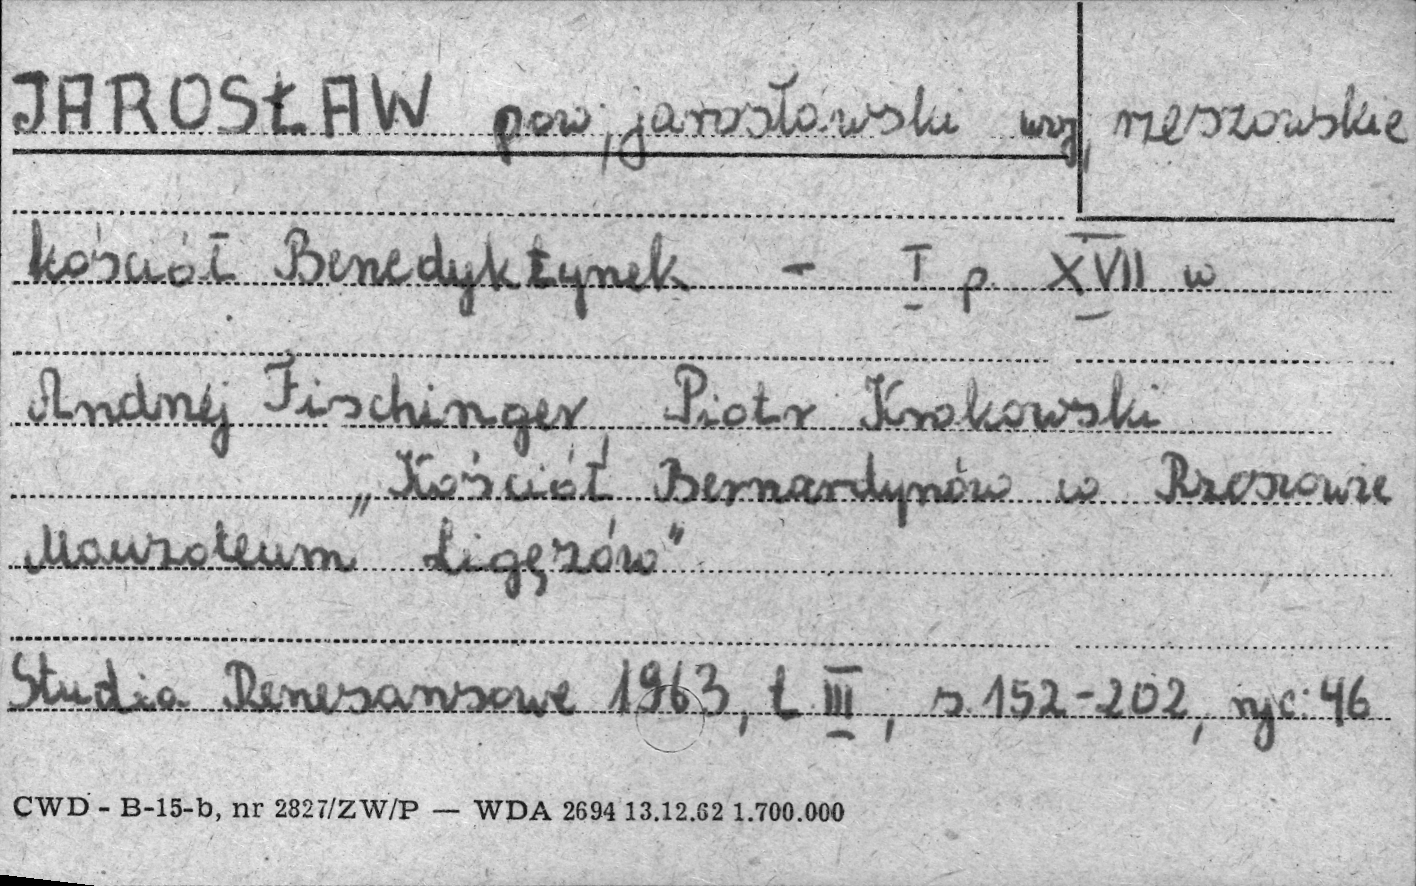 JAROSŁAW pow, jarosławski woj, rzeszowskie
kościół Benedyktynek - I p. XVII w
Andrzej Fischinger, Piotr Krakowski
„Kościół Bernardynów w Rzeszowie
Mauzoleum Ligęzów"
Studia Renesansowe 1963, t III, s. 152-202, ryc: 46
CWD - B-15-b, nr 2827/ZW/P — WDA 2694 13.12.62 1.700.000